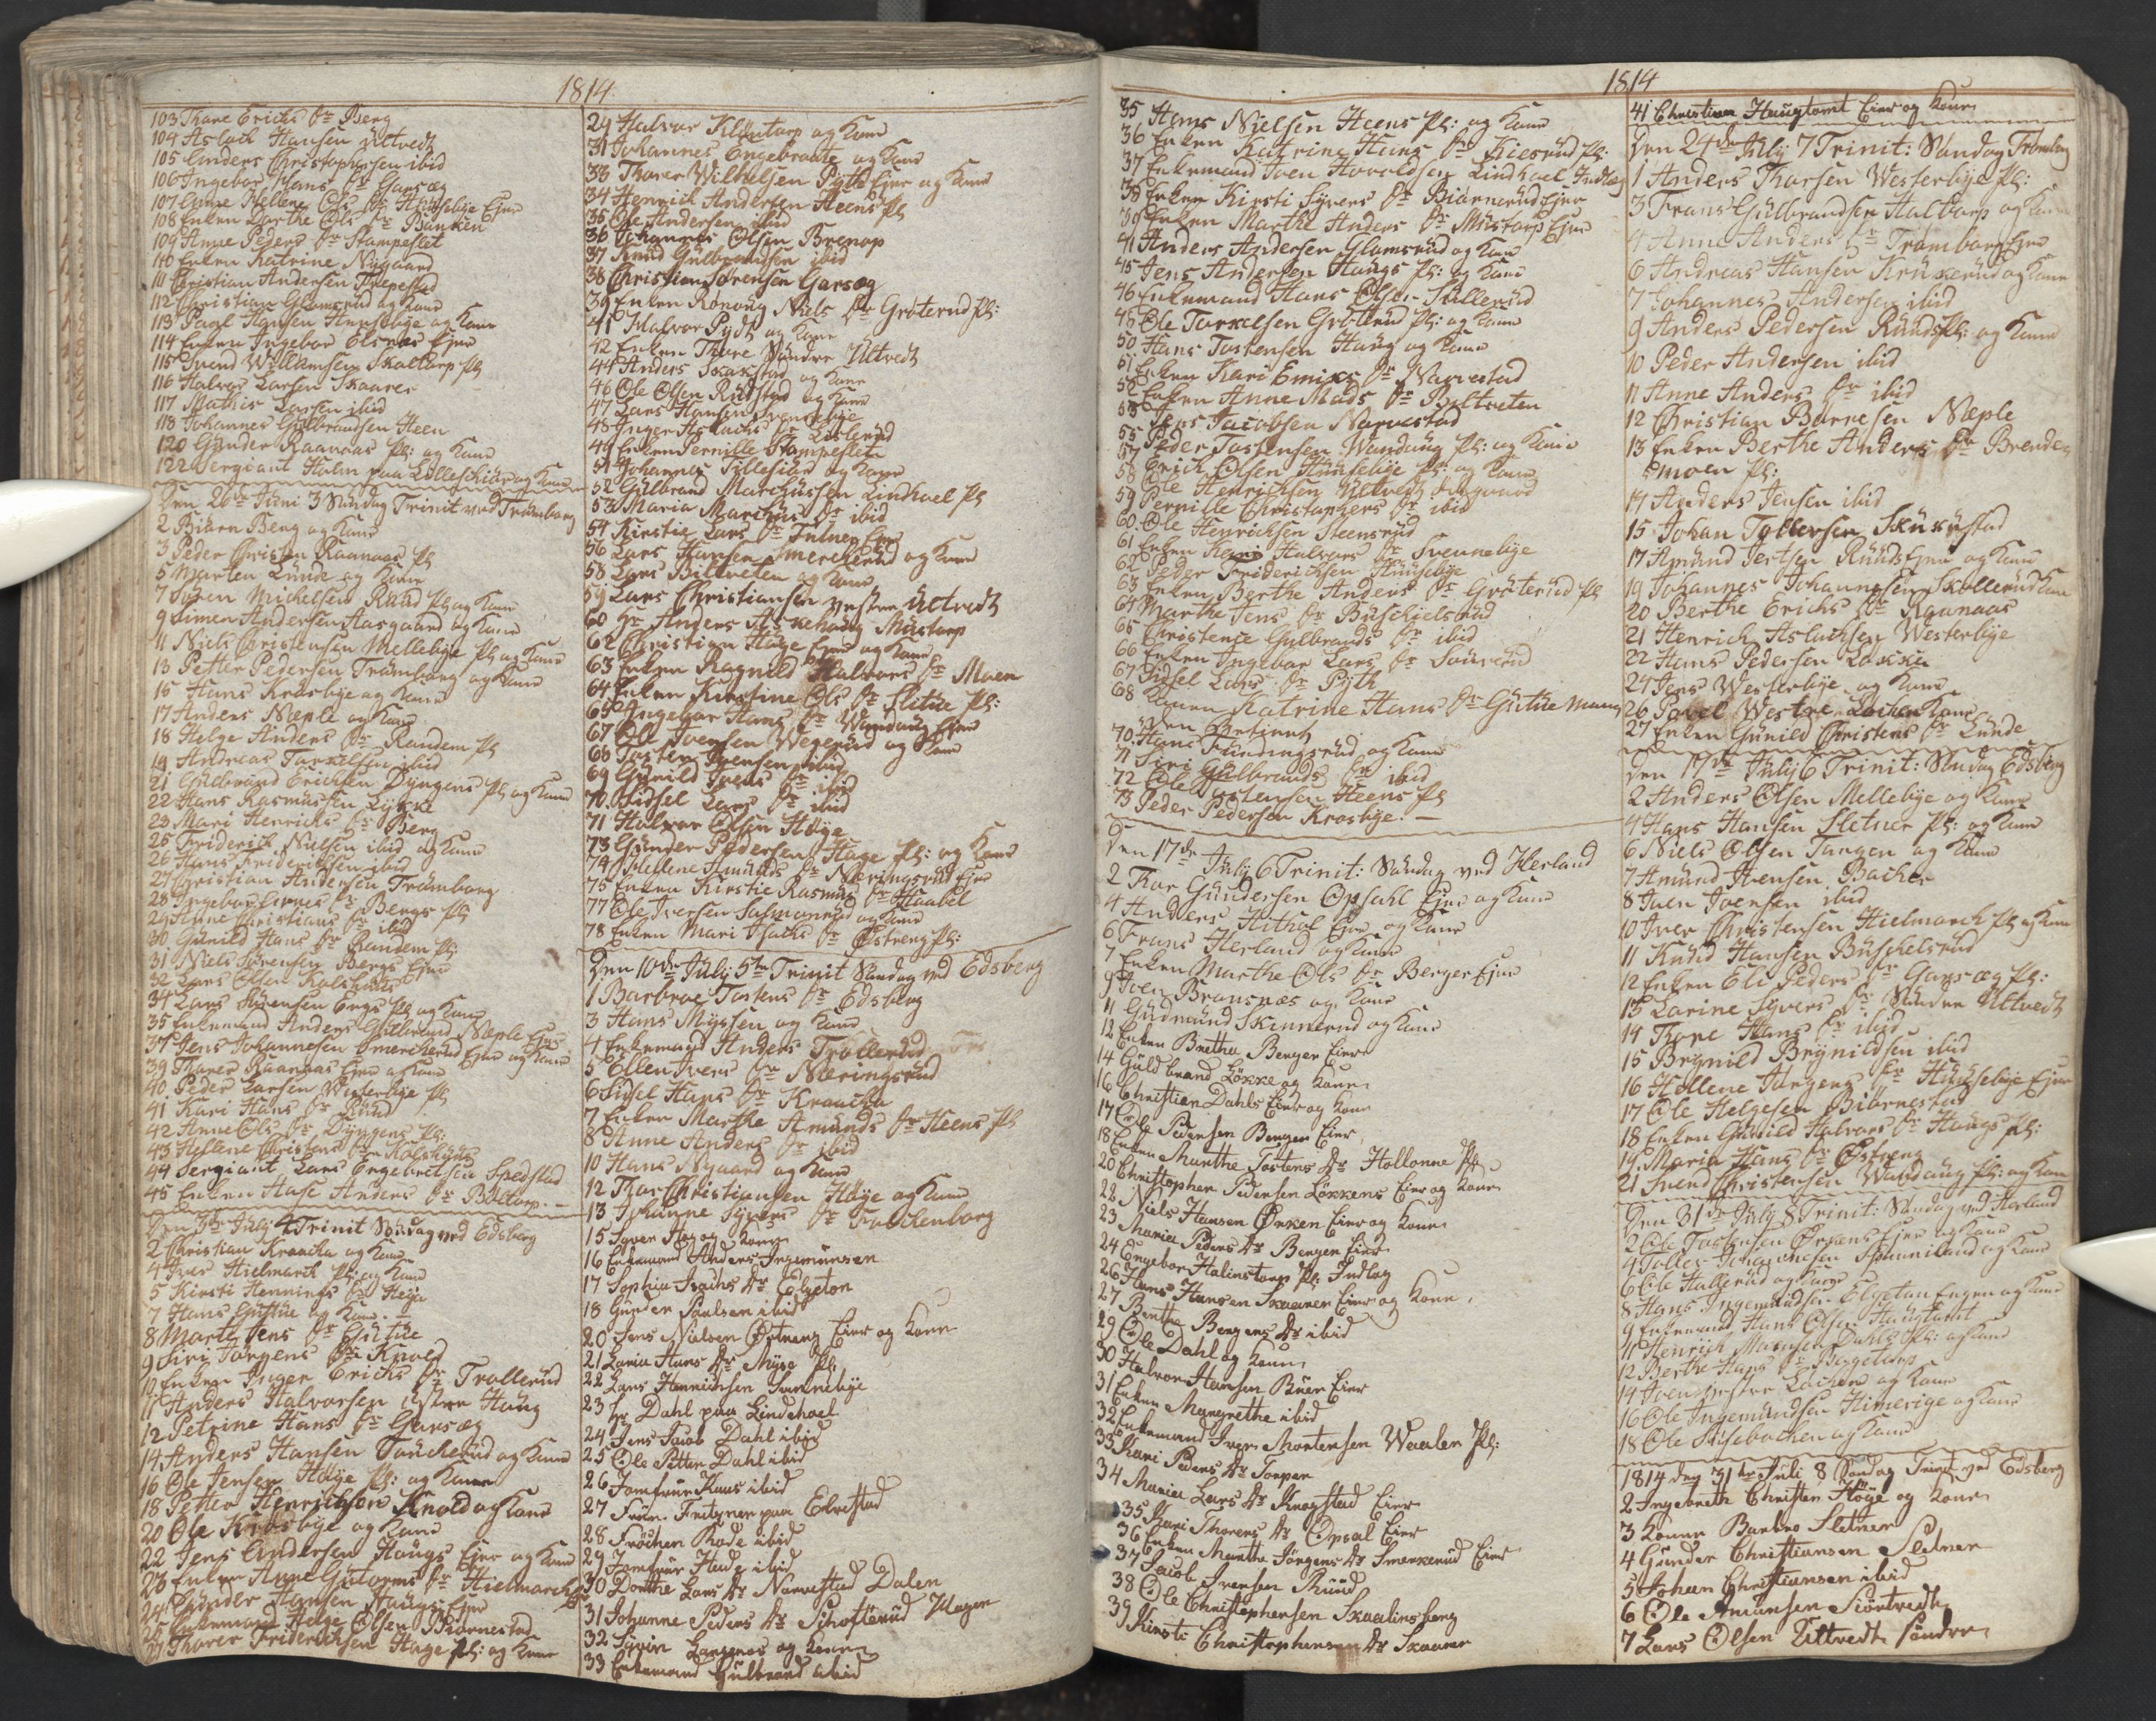 1814
103 Thore Erichs Dr Berg
104 Aslach Hansen Ultvedt
105 Anders Christophersen ibid
106 Ingebor Hans Dr Garsæg
107 Anne Hellene Ols Dr Huusebye Ejer
108 Enken Dorthe Ols Dr Banken
109 Anne Peders Dr Stampeflet
110 Enken Katrine Nygaard
111 Christian Andersen
112 Christian Glamsrud og Kone
113 Povel Hansen Huusebye og Kone
114 Enken Ingebor Elsnæs Ejer
115 Svend Willumsen Skaltorp Pl
116 Halvor Larsen Skaarer
117 Mathis Larsen ibid
118 Johannes Gulbrandsen Heen
120 Gunder Raanaas Pl: og Kone
122 Sergiant Holm paa Lilleskiør og Kone
Den 26de Juni 3 Søndag Trinit ved Trømborg
2 Biørn Berg og Kone
3 Peder Christen Raanaas Pl
5 Morten Lunde og Kone
7 Søren Michelsen Ruud Pl og Kone
9 Simen Andersen Aasgaard og Kone
11 Niels Christensen Mellebye Pl og Kone
13 Petter Pedersen Trømborg og Kone
15 Hans Krosbye og Kone
17 Anders Næple og Kone
18 Helge Anders Dr Randem Pl
19 Andreas Torkelsen ibid
21 Gulbrand Erichsen Dyngens Pl og Kone
22 Hans Rasmussen Lykke
23 Mari Henrichs Dr Berg
25 Friderich Nielsen ibid og Kone
26 Hans Friderichsen ibid
27 Christian Andersen Trømborg
28 Ingebor Dr Bergs Pl
29 Anne Christians Dr ibid
30 Gunild Hans Dr Randem Pl:
31 Niels Sørensen Bergs Ejer
32 Lars Olsen Kolshuus
34 Lars Sørensen Engs Pl og Kone
35 Enkemand Anders Gulbrand Næple Ejer
37 Jens Johannesen Smerkerud Ejer og Kone
39 Thorer Raanaas Ejer og Kone
40 Peder Larsen Westerbye Pl
41 Kari Hans Dr Ruud
42 Anne Ols Dr Dyngens Pl:
43 Hellene Christens Dr Kolshuus
44 Sergiant Lars Engebretsen Spedstad
45 Enken Aase Anders Dr Boltorp
Den 3de July 4 Trinit Søndag ved Edsberg
2 Christian Kraacka og Kone
4 Iver Hielmarck Pl: og Kone
5 Kirsti Hennings Dr Heyer
7 Hans Guttue og Kone
8 Marte Jens Dr Gutue
9 Siri Jørgens Dr Knold
10 Enken Inger Erichs Dr Trollerud
11 Anders Halvorsen østre Haug
12 Petrine Hans Dr Garsæg
14 Anders Hansen Tonckerud og Kone
16 Ole Jensen Høye Pl: og Kone
18 Petter Henrichsen Knold og Kone
20 Ole Krosbye og Kone
22 Jens Andersen Haugs Ejer og Kone
23 Enken Anne Gutorms Dr Hielmarck
24 Gunder Hansen Haugs Ejer
25 Enkemand Helge Olsen Biørnestad
27 Thorer Friderichsen Hage Pl: og Kone
29 Halvor Kløntorp og Kone
31 Johannes Engebraate og Kone
33 Thorer Wilhelsen Pyth Ejer og Kone
34 Henrich Andersen Heens Pl
35 Ole Andersen ibid
36 Johannes Olsen Brenop
37 Knud Gulbrandsen ibid
38 Christian Sørensen Garsæg
39 Enken Rønoug Niels Dr Grøterud Pl:
41 Halvor Pydt og Kone
42 Enken Thore søndre Ultvedt
44 Anders Skakstad og Kone
46 Ole Olsen Rudstad og Kone
47 Lars Hansen Svennebye
48 Inger Aslachs Dr Løslerud
49 Enken Pernille Stampeflet
51 Johannes Tillesiør og Kone
52 Gulbrand Marchussen Lindhoel Pl
53 Maria Marchus Dr ibid
54 Kirstie Lars Dr Ejer
56 Lars Hansen Smerckerud og Kone
58 Lars Biltveten og Kone
59 Lars Christiansen vestre Ultvedt
60 Hr Anders Askehoug Mustorp
62 Christian Hage Ejer og Kone
63 Enken Ragnild Halvors Dr Moen
64 Enken Kirstine Ols Dr Slitue Pl:
65 Ingebor Hans Dr Wandaug Ejer
67 Ole Ivensen Wegerud og Kone
68 Tosten Ivensen ibid
69 Gunild Ivers Dr ibid
70 Sidsel Lars Dr ibid
71 Halvor Olsen Høye
73 Gunder Pedersen Hage Pl: og Kone
74 Hellene Amunds Dr Næringsrud Ejer
75 Enken Kirstie Rasmus Dr Haabel
77 Ole Iversen Salmonrud og Kone
78 Enken Mari Isachs Dr Østreng Pl:
Den 10de July 5te Trinit Søndag ved Edsberg
1 Barbroe Tostens Dr Edsberg
3 Hans Myssen og Kone
4 Enkemand Anders Trollerud
5 Ellen Ivers Dr Næringsrud
6 Sidsel Hans Dr Kraacka
7 Enken Marthe Amunds Dr Heens Pl
8 Anne Anders Dr ibid
10 Hans Nygaard og Kone
12 Thor Christiansen Høye og Kone
13 Johanne Syvers Dr Fuchenborg
15 Syver Hog og Kone
16 Enkemand Anders Ingemunsen
17 Sophia Isachs Dr Elgeton
18 Gunder Poulsen ibid
20 Jens Nielsen Østreng Eier og Kone
21 Laria Hans Dr Myre Pl:
22 Lars Henrichsen Svennebye
23 Hr Dahl paa Lindehoel
24 Jens Jacob Dahl ibid
25 Ole Petter Dahl ibid
26 Jomfrue Kaus ibid
27 Frue Fritzner paa Elvestad
28 Frøchen Rode ibid
29 Jomfrue Hade ibid
30 Dorthe Lars Dr Narvestad Dalen
31 Johanne Peders Dr Schofterud Hagen
32 Syver Langenes og Kone
33 Enkemand Gulbrand ibid
1814
35 Hans Nielsen Heens Pl: og Kone
36 Enken Katrine Hans Dr Kiesrud Pl:
37 Enkemand Iven Haraldsen Lindhoel Indlag
38 Enken Kirsti Syvers Dr Biørnerud Ejer
39 Enken Marthe Anders Dr Mustorp Ejer
41 Anders Andersen Glamsrud og Kone
45 Jens Andersen Haugs Pl: og Kone
46 Enkemand Hans Olsen Skillerud
48 Ole Torkelsen Grøterud Pl: og Kone
50 Hans Tostensen Haug og Kone
51 Enken Kari Emixs Dr Narvestad
52 Enken Anne Mads Dr Biltveten
53 Jens Jacobsen Narvestad
55 Peder Tostensen Wandaug Pl: og Kone
57 Erich Olsen Huusebye Pl: og Kone
58 Ole Henrichsen Ultvedt
59 Pernille Christophers Dr ibid
60 Ole Henrichsen Steensrud
61 Enken Kari Halvors Dr Svennebye
62 Peder Friderichsen Huusebye
63 Enken Berthe Anders Dr Grøterud Pl
64 Marthe Jens Dr Buskielsrud
65 Christence Gulbrands Dr ibid
66 Enken Ingebor Lars Dr Souverud
67 Sidsel Lars Dr Pyth
68 Konen Katrine Hans Dr Gutue Mans
den betient
70 Hans Fundingsrud og Kone
71 Siri Gulbrands Dr ibid
72 Ole Tostensen Heens Pl
73 Peder Pedersen Krosbye
Den 17de July 6 Trinit: Søndag ved Herland
2 Thor Gundersen Opsahl Ejer og Kone
4 Anders Hithol Ejer og Kone
6 Frans Herland og Kone
7 Enken Marthe Ols Dr Berger Ejer
9 Iven Bransnæs og Kone
11 Gudmund Skinnerud og Kone
12 Enken Brethe Berger Eier
14 Guldbrand Løkke og Kone
16 Christian Dahls Eier og Kone
17 Ole Pedersen Berger Eier
18 Enken Marthe Tostens Dr Hollonne Pl:
20 Christopher Pedersen Løkkens Eier og Kone
22 Niels Hansen Ørken Eier og Kone
23 Maria Peders Dr Berger Eier
24 Engebor Halinstorp Pl: Indlag
26 Hans Hansen Skaarer Eier og Kone
27 Berthe Bergers Dr ibid
29 Ole Dahl og Kone
30 Halvor Hansen Buer Eier
31 Enken Margrethe ibid
32 Enkemand Iver Mortensen Waaler Pl:
33 Kari Peders Dr Torper
34 Maria Lars Dr Krogstad Eier
35 Kari Thorers Dr Opsal Eier
36 Enken Marthe Jørgens Dr Smerkerud Eier
37 Jacob Iversen Ruud
38 Ole Christophersen Skaalinsberg
39 Kirsti Christophersen Dr Skaarer
1814
41 Christian Haugtomt Eier og Kone
Den 24de July 7 Trinit: Søndag Trømborg
1 Anders Thorsen Westerbye Pl:
3 Frans Gulbrandsen Haltorp og Kone
4 Anne Anders Dr Trømborg Ejer
6 Andreas Hansen Kruserud og Kone
7 Johannes Andersen ibid
9 Anders Pedersen Ruuds Pl: og Kone
10 Peder Andersen ibid
11 Anne Anders Dr ibid
12 Christian Børresen Næple
13 Enken Berthe Anders Dr Brende
moen Pl:
14 Anders Jensen ibid
15 Johan Tollersen Skuxestad
17 Amund Jertsen Ruuds Ejer og Kone
19 Johannes Johannesen Skollerud Kone
20 Berthe Erichs Dr Raanaas
21 Henrich Aslachsen Westerbye
22 Hans Pedersen Løkka
24 Jens Westerbye og Kone
26 Povel Westre Løcken Kone
27 Enken Gunild Christens Dr Lunde
Den 17de July 6 Trinit: Søndag Edsberg
2 Anders Olsen Mellebye og Kone
4 Hans Hansen Sletner Pl: og Kone
6 Niels Olsen Tangen og Kone
7 Amund Ivensen Backer
8 Iven Ivensen ibid
10 Iver Christensen Hielmarck Pl og Kone
11 Knud Hansen Buskelsrud
12 Enken Eli Peders Dr Garsæg Pl:
13 Larine Syvers Dr søndre Ultvedt
14 Thore Hans Dr ibid
15 Brynild Brynildsen ibid
16 Hellene Jørgens Dr Huusebye Ejer
17 Ole Helgesen Biørnestad
18 Enken Gunild Halvors Dr Haugs Pl:
19 Maria Hans Dr Østreng
21 Svend Christensen Wandaug Pl: og Kone
Den 31de July 8 Trinit: Søndag ved Herland
2 Ole Tostensen Ørkens Ejer og Kone
4 Tolle Johannesen Spønneland og Kone
6 Ole Hallerud og Kone
8 Hans Ingemundsen Elgetun Engen og Kone
9 Enkemand Hans Olsen Haugtomt
11 Henrich Mads Dahls Pl: og Kone
12 Berthe Hans Dr Bøgetorp
14 Iven vestre Løcken og Kone
16 Ole Ingemundsen Himerige og Kone
18 Ole Huusebacken og Kone
1814 den 31te Juli 8 Søndag Trinit ved Edsberg
2 Ingebreth Christen Høye og Kone
3 Konen Barbro Sletner
4 Gunder Christiansen Sletner
5 Johan Christiansen ibid
6 Ole Amunsen Siørtvedt
7 Lars Olsen Ultvedt søndre